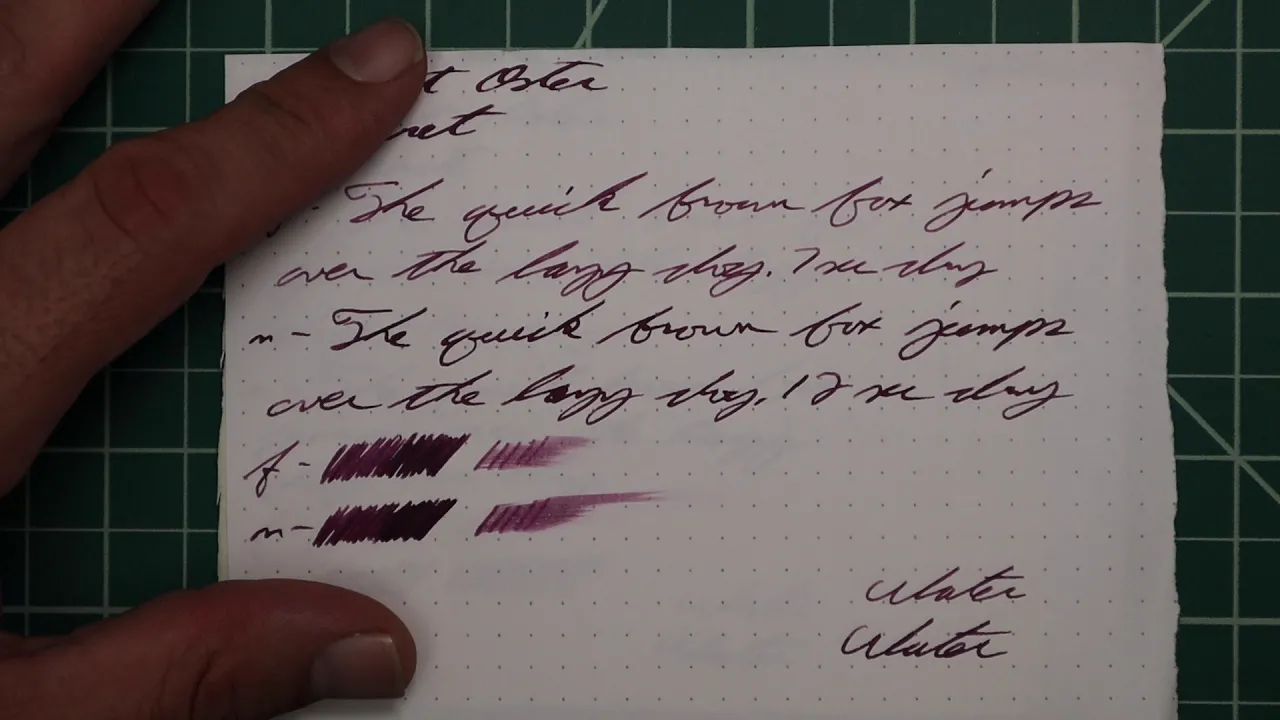 t Oster
- The quick brown fox jumps
over the lazy dog. 7 sec dry
m - The quick brown fox jumps
over the lazy dog. 12 sec dry
f -
m -
Water
Water